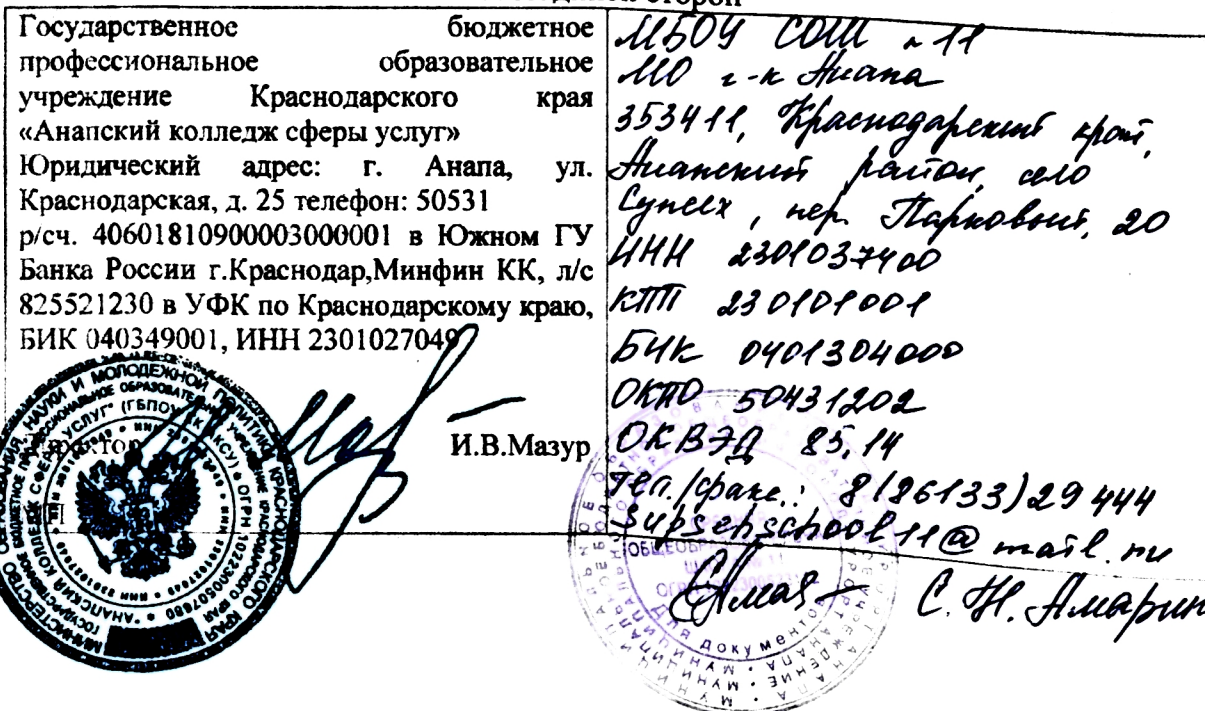 сторон
Государственное бюджетное
профессиональное образовательное
учреждение Краснодарского края
«Анапский колледж сферы услуг»
Юридический адрес: г. Анапа, ул.
Краснодарская, д. 25 телефон: 50531
р/сч. 40601810900003000001 в Южном ГУ
Банка России г.Краснодар,Минфин КК, л/с
825521230 в УФК по Краснодарскому краю,
БИК 040349001, ИНН 2301027049
Директор
И.В.Мазур
МП
МБОУ СОШ №11
МО г-к Анапа
353411, Краснодарский край,
Анапский район, село
Супсех, пер. Парковый, 20
ИНН 2301037400
КПП 230101001
БИК 0401304000
ОКПО 50431202
ОКВЭД 85.14
тел./факс.: 8(86133)29 444
supsehschool11@mail.ru
С.Н. Амарин
МОЛОДЕЖНОЙ ПОЛИТИКИ КРАСНОДАРСКОГО КРАЯ
ДЛЯ ДОКУМЕНТОВ